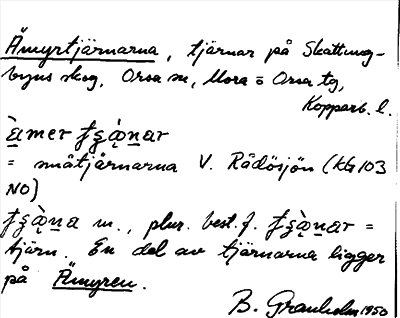 Ämyrtjärnarna, tjärnar på Skattung-
byns skog, Orsa sn, Mora o Orsa tg,
Kopparb. l.
= småtjärnarna V. Rådösjön (kbl 103
NO)
m., plur. best. f. =
tjärn. En del av tjärnarna ligger
på Ämyren.
B. Granholm 1950